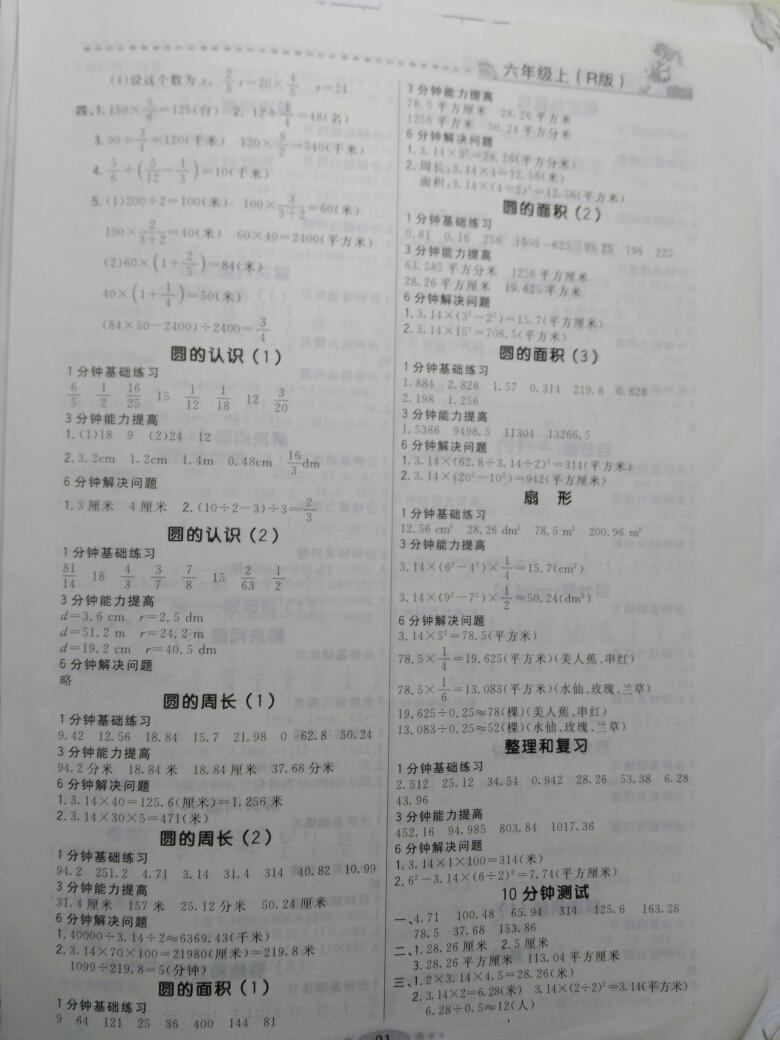 六年级上（R版）
(4)设这个数为 x。 2/3 x=20×4/5 x=24
四、1.150×5/6=125(台) 2.12÷1/4=48(名)
3.90÷3/4=120(千米) 120×9/2=540(千米)
4. 5/6÷(5/12-1/3)=10(千米)
5.(1)200÷2=100(米) 100×3/(3+2)=60(米)
100×2/(3+2)=40(米) 60×40=2400(平方米)
(2)60×(1+2/5)=84(米)
40×(1+1/4)=50(米)
(84×50-2400)÷2400=3/4
圆的认识(1)
1分钟基础练习
6/5 1/2 16/25 15 1/12 1/18 12 3/20
3分钟能力提高
1.(1)18 9 (2)24 12
2.3.2cm 1.2cm 1.4m 0.48cm 16/3dm
6分钟解决问题
1.3厘米 4厘米 2.(10÷2-3)÷3=2/3
圆的认识(2)
1分钟基础练习
81/14 18 4/3 3/7 7/8 15 2/63 1/2
3分钟能力提高
d=3.6 cm r=2.5 dm
d=51.2 m r=24.2 m
d=19.2 cm r=40.5 dm
6分钟解决问题
略
圆的周长(1)
1分钟基础练习
9.42 12.56 18.84 15.7 21.98 0 62.8 50.24
3分钟能力提高
94.2分米 18.84米 18.84厘米 37.68分米
6分钟解决问题
1.3.14×40=125.6(厘米)=1.256米
2.3.14×30×5=471(米)
圆的周长(2)
1分钟基础练习
94.2 251.2 4.71 3.14 31.4 314 40.82 10.99
3分钟能力提高
31.4厘米 157米 25.12分米 50.24厘米
6分钟解决问题
1.40000÷3.14÷2≈6369.43(千米)
2.3.14×70×100=21980(厘米)=219.8米
1099÷219.8=5(分钟)
圆的面积(1)
1分钟基础练习
9 64 121 25 36 400 144 81
3分钟能力提高
78.5平方厘米 28.26平方米
1256平方米 50.24平方分米
6分钟解决问题
1.3.14×3²=28.26(平方分米)
2.周长:3.14×4=12.56(米)
面积:3.14×(4÷2)²=12.56(平方米)
圆的面积(2)
1分钟基础练习
0.81 0.16 256 1600 625 30.25 196 225
3分钟能力提高
63.585平方分米 1256平方厘米
28.26平方厘米 19.625平方米
6分钟解决问题
1.3.14×(3²-2²)=15.7(平方厘米)
2.3.14×15²=706.5(平方米)
圆的面积(3)
1分钟基础练习
1.884 2.826 1.57 0.314 219.8 0.628
2.198 1.256
3分钟能力提高
1.5386 9498.5 11304 13266.5
6分钟解决问题
1.3.14×(62.8÷3.14÷2)²=314(平方米)
2.3.14×(20²-10²)=942(平方厘米)
扇 形
1分钟基础练习
12.56 cm² 28.26 dm² 78.5 m² 200.96 m²
3分钟能力提高
3.14×(6²-4²)×1/4=15.7(cm²)
3.14×(9²-7²)×1/2=50.24(dm²)
6分钟解决问题
3.14×5²=78.5(平方米)
78.5×1/4=19.625(平方米)(美人蕉、串红)
78.5×1/6=13.083(平方米)(水仙、玫瑰、兰草)
19.625÷0.25≈78(棵)(美人蕉、串红)
13.083÷0.25≈52(棵)(水仙、玫瑰、兰草)
整理和复习
1分钟基础练习
2.512 25.12 34.54 0.942 28.26 53.38 6.28
43.96
3分钟能力提高
452.16 94.985 803.84 1017.36
6分钟解决问题
1.3.14×1×100=314(米)
2.6²-3.14×(6÷2)²=7.74(平方厘米)
10分钟测试
一、4.71 100.48 65.94 314 125.6 163.28
78.5 37.68 153.86
二、1.28.26厘米 2.5厘米
3.28.26平方厘米 113.04平方厘米
三、1.2×3.14×4.5=28.26(米)
2.3.14×2=6.28(米) 3.14×(2÷2)²=3.14(平方米)
6.28÷0.5≈12(人)
91